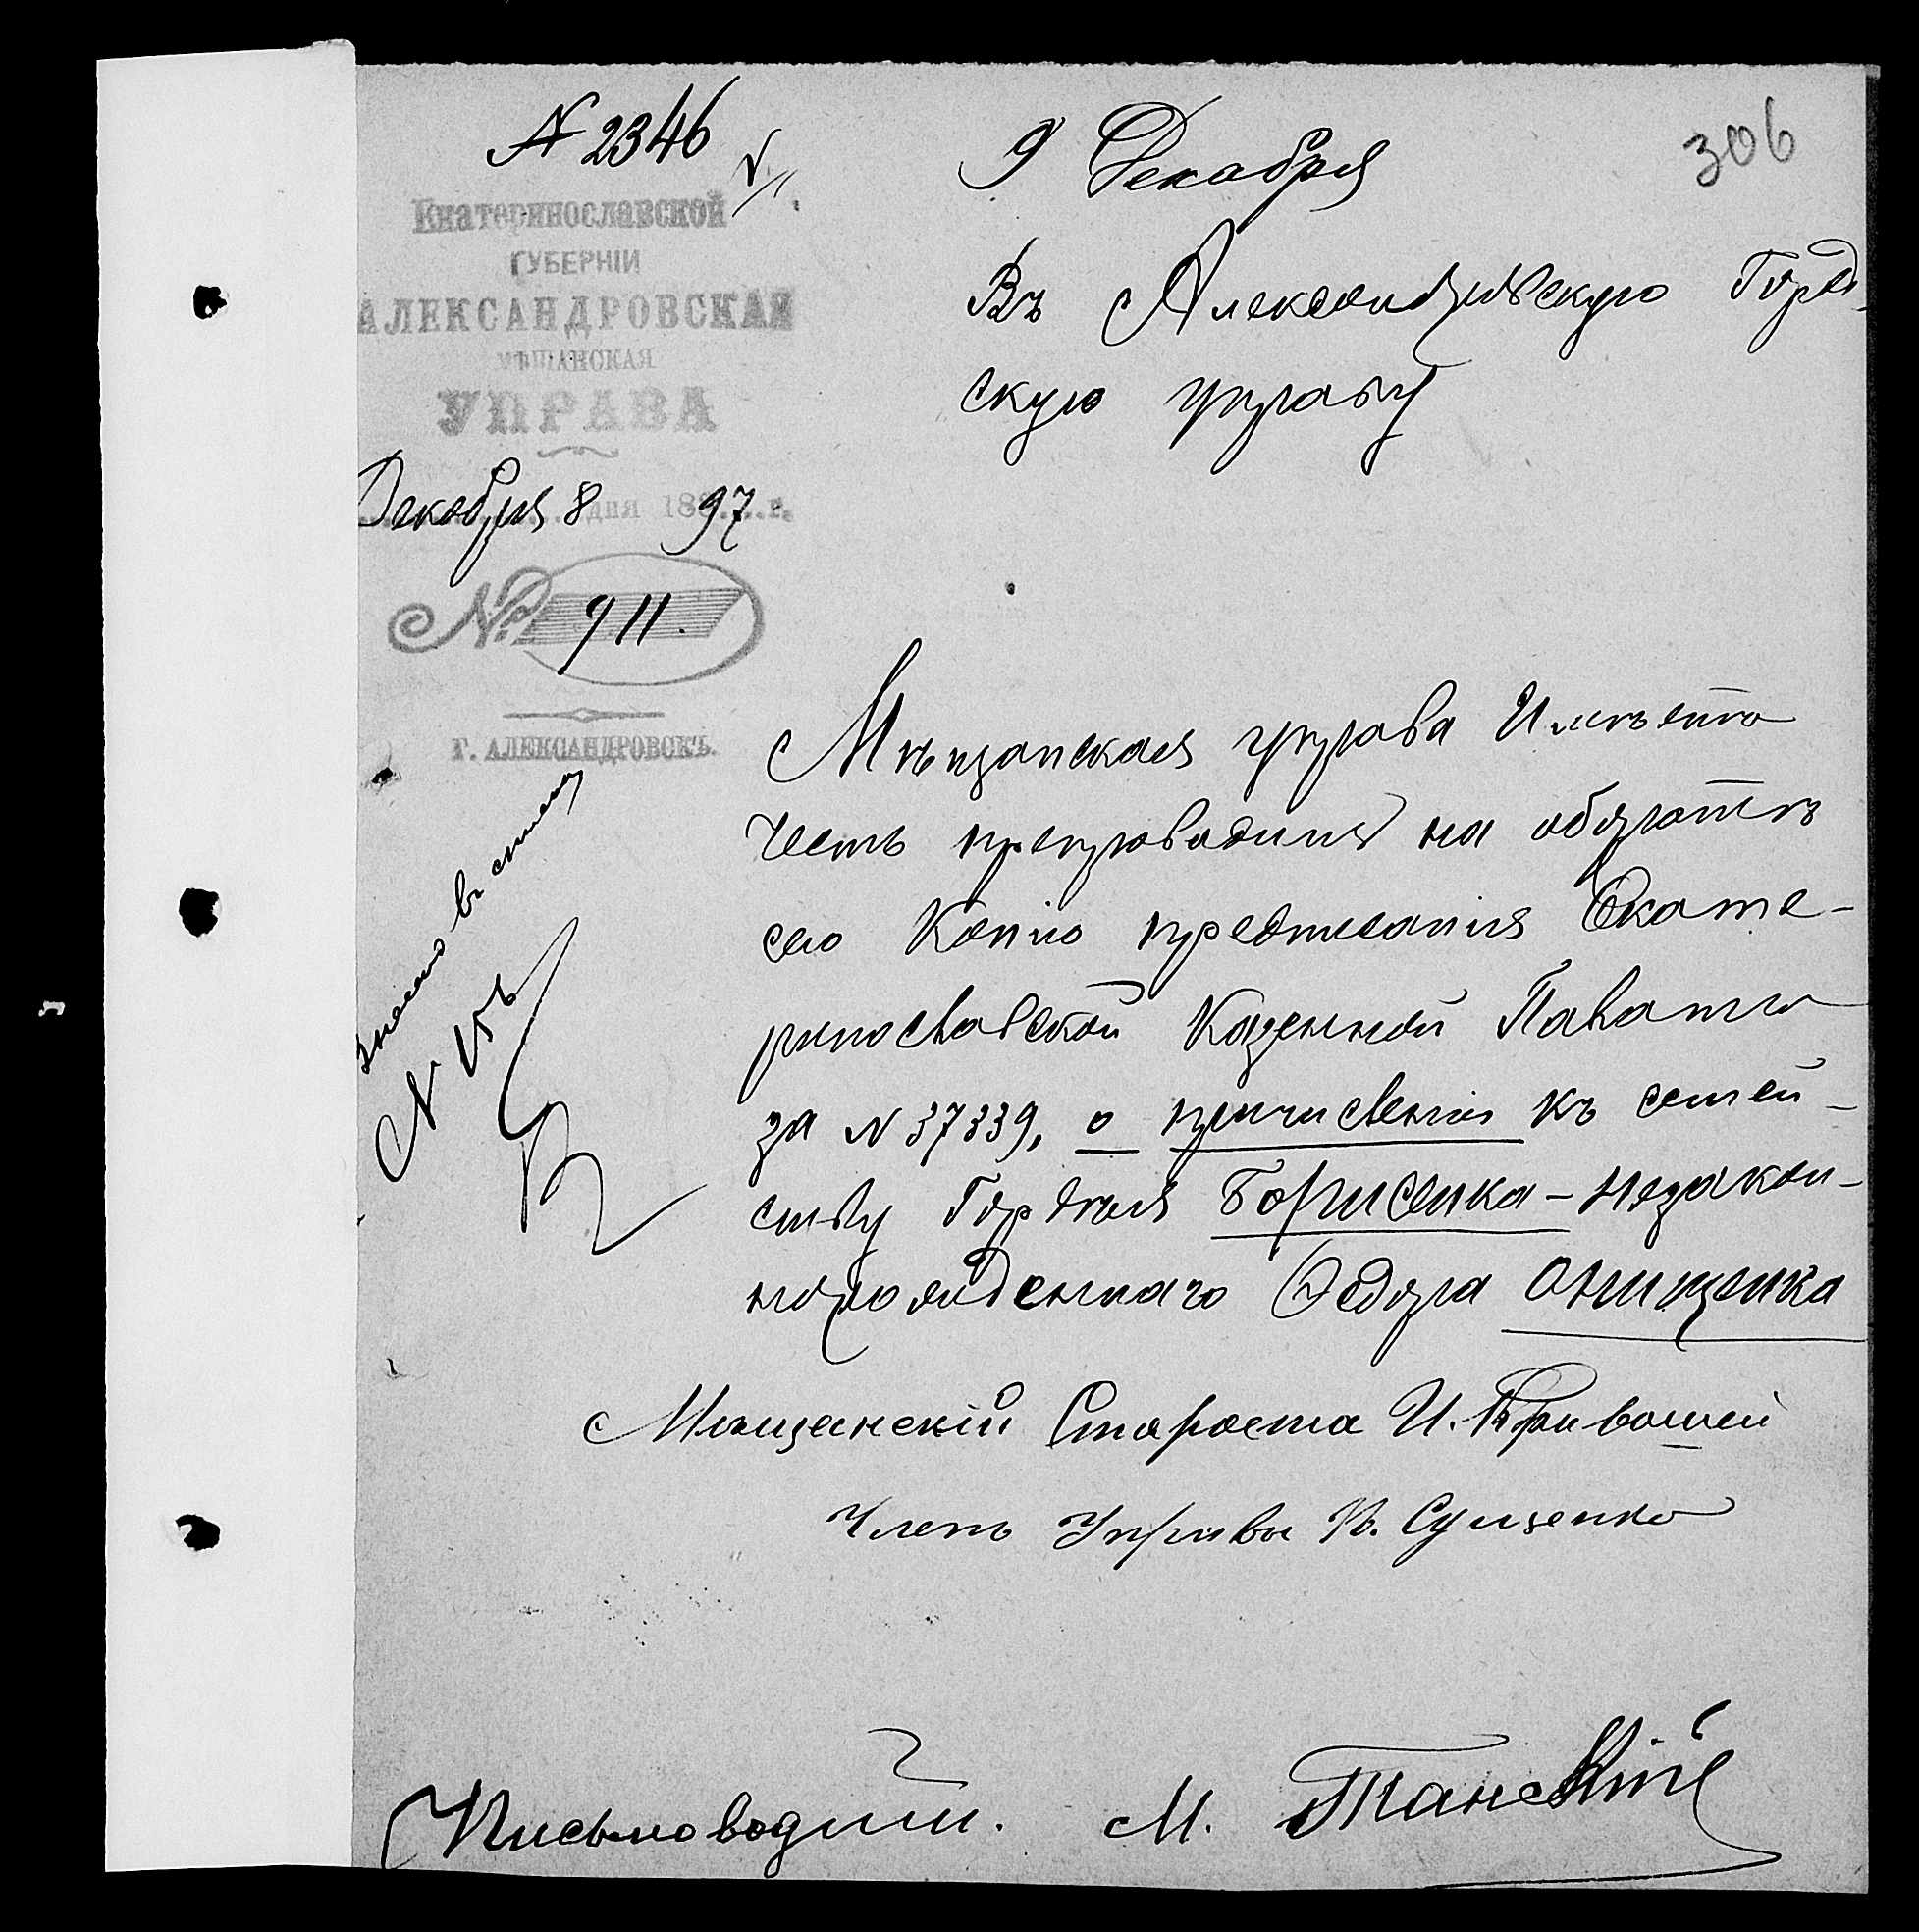 № 2346
9 Декабря
306
Екатеринославской
ГУБЕРНІИ
АЛЕКСАНДРОВСКАЯ
МѢЩАНСКАЯ
УПРАВА
Декабря 8 дня 188 97 г.
№ 911.
Г. АЛЕКСАНДРОВСКЪ.
Въ Александровскую Город-
скую управу
Мѣщанская управа Имѣетъ
честь препроводить на оборотѣ
сего Копію предписанія Екате-
ринославской Казенной Палаты
за N 37339, о причисленіи къ семей-
ству Гордѣя Борисенка - незакон-
норожденнаго Ѳедора Онищенка
Мѣщанскій Староста И. Кривошей
Членъ Управы К. Сущенко
Письмоводит. М. Танскій
въ списокъ
N